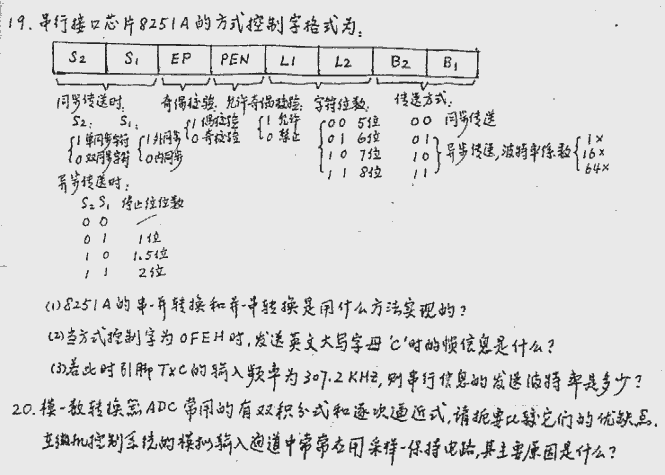 19. 串行接口芯片8251A的方式控制字格式为:
S2 S1 EP PEN L1 L2 B2 B1
同步传送时: 奇偶校验: 允许奇偶校验: 字符位数: 传送方式:
S2: S1: {1 偶校验 {1 允许 {0 0 5位 0 0 同步传送
{1 单同步字符 {1 外同步 0 奇校验 0 禁止 0 1 6位 0 1 } 异步传送,波特率系数 { 1×
0 双同步字符 0 内同步 1 0 7位 1 0 16×
异步传送时: 1 1 8位 1 1 64×
S2 S1 停止位位数
0 0 —
0 1 1位
1 0 1.5位
1 1 2位
(1)8251A的串-并转换和并-串转换是用什么方法实现的?
(2)当方式控制字为0FEH时,发送英文大写字母'C'时的帧信息是什么?
(3)若此时引脚TXC的输入频率为307.2KHZ,则串行信息的发送波特率是多少?
20. 模-数转换器ADC常用的有双积分式和逐次逼近式,请扼要比较它们的优缺点.
在微机控制系统的模拟输入通道中常常应用采样-保持电路,其主要原因是什么?